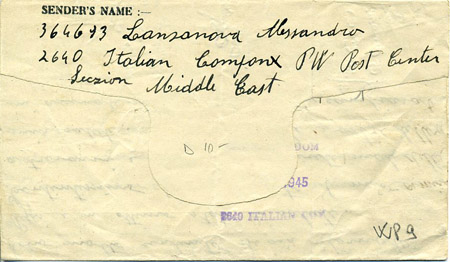 SENDER'S NAME :—
364693 Lanzanova Alessandro
2640 Italian Compnx PW Post Center
Seczion Middle East
D 10-
COM
1945
2640 ITALIAN
WP9